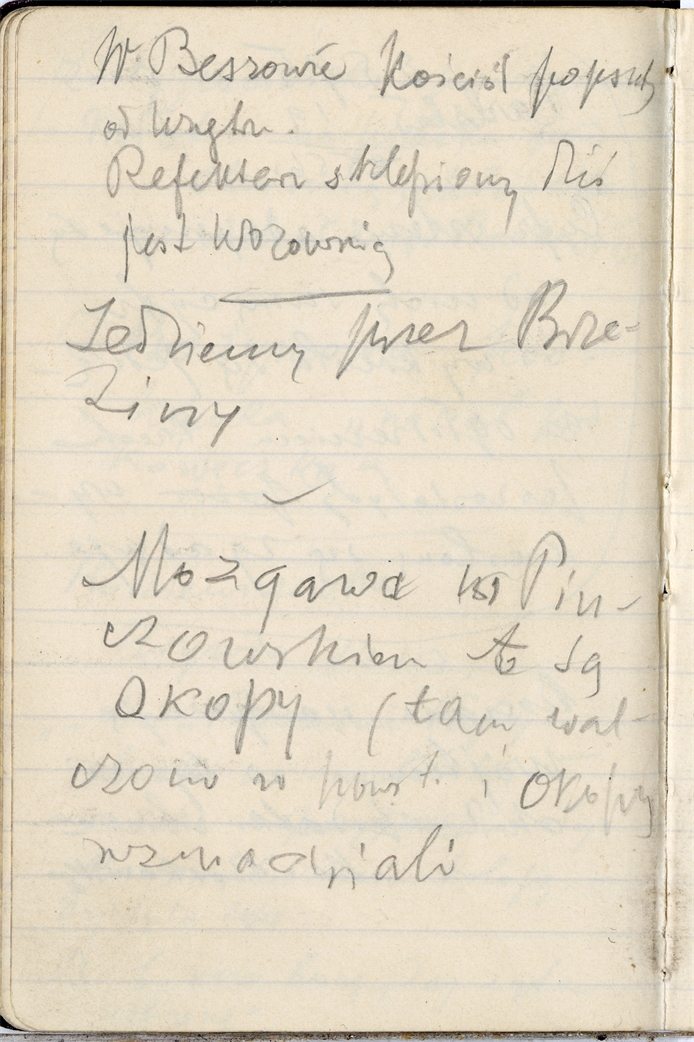 W Beszowie Kościół popsuty
od wnętrz.
Refektarz sklepiony dziś
jest wozownią
Jedziemy przez Brze-
ziny
Mozgawa w Piń-
czowskiem te są
Okopy (tam wal-
czono w powst. i okopy